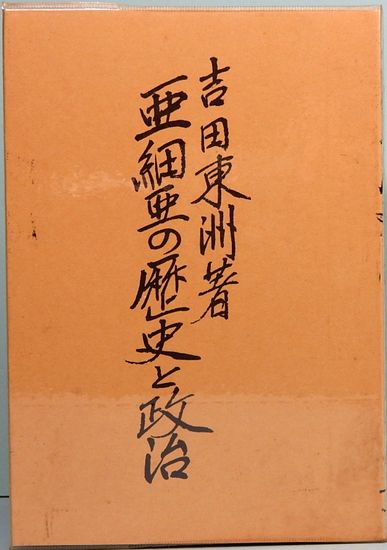 吉田東洲著
亜細亜の歴史と政治